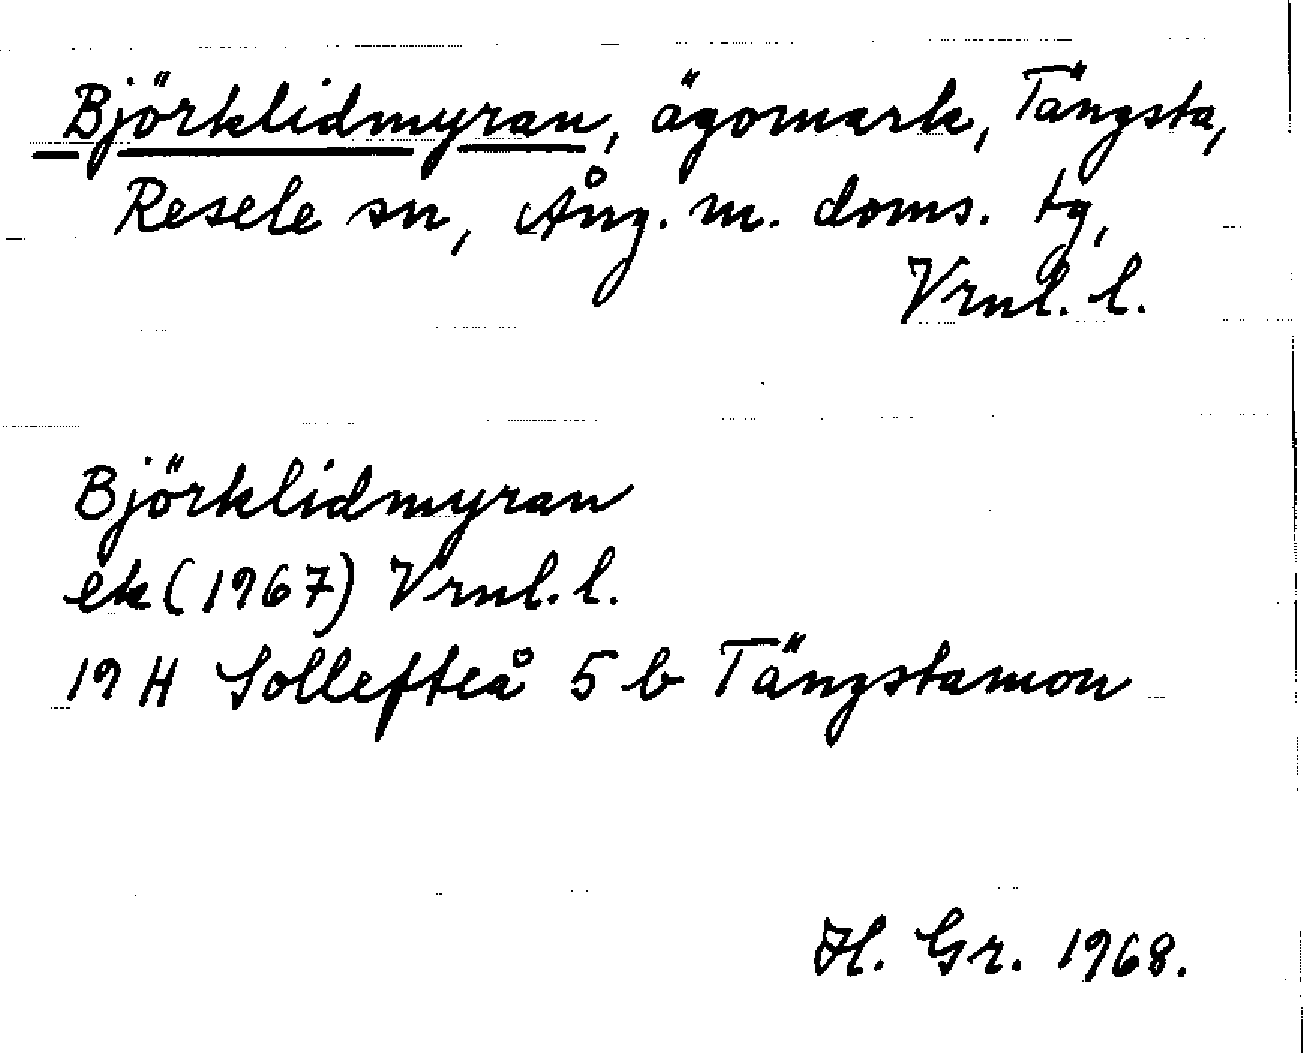 Björklidmyran, ägomark, Tängsta,
Resele sn, Ång. m. doms. tg,
Vrnl. l.
Björklidmyran
ek (1967) Vrnl. l.
19 H Sollefteå 5 b Tängstamon
H. Gr. 1968.